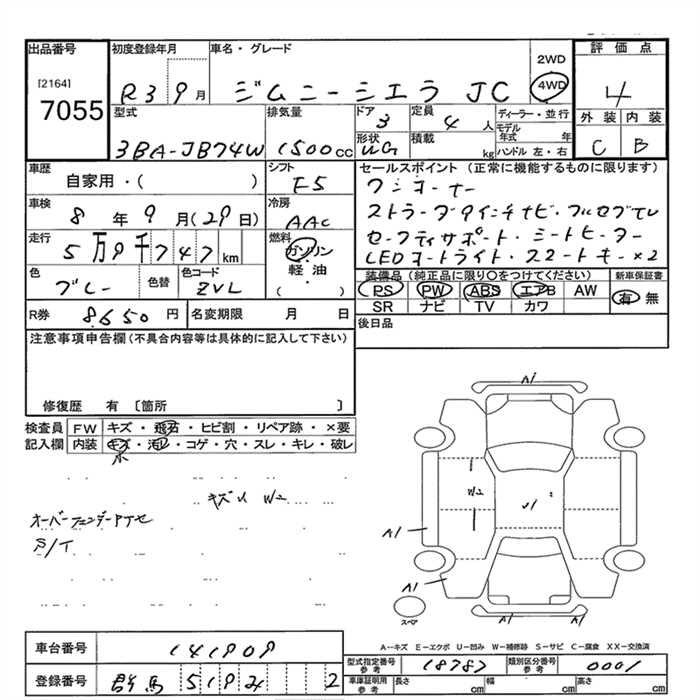 出品番号
[2164]
7055
初度登録年月
R3 9月
車名・グレード
ジムニーシエラ JC
2WD
4WD
評価点
4
外装 内装
C B
型式
3BA-JB74W
排気量
1500cc
ドア
3
定員
4人
形状
WG
積載
kg
ディーラー・並行
モデル年式 年
ハンドル 左・右
車歴
自家用・( )
シフト
F5
車検
8年9月(29日)
冷房
AAC
走行
5万9千747km
燃料
ガソリン
軽・油
( )
色
グレー
色替
色コード
ZVL
セールスポイント (正常に機能するものに限ります)
ワンオーナー
ストラーダ9インチナビ・フルセグTV
セーフティサポート・シートヒーター
LEDオートライト・スマートキー×2
装備品 (純正品に限り○をつけてください)
PS PW ABS エアB AW
SR ナビ TV カワ
新車保証書
有 無
R券
8650円
名変期限 月 日
後日品
注意事項申告欄(不具合内容等は具体的に記入して下さい)
修復歴 有 〔箇所 〕
検査員記入欄
FW キズ・飛石・ヒビ割・リペア跡・×要
内装 キズ・汚れ・コゲ・穴・スレ・キレ・破レ
小
キズU W2
オーバーフェンダー
S/T
A1
W2
U1
A1
A1
A1
スペア
A−キズ E−エクボ U−凹み W−補修跡 S−サビ C−腐食 XX−交換済
車台番号
141909
登録番号
群馬
型式指定番号
参考
18787
類別区分番号
参考
0001
車庫証明用
参考
長さ cm
幅 cm
高さ cm